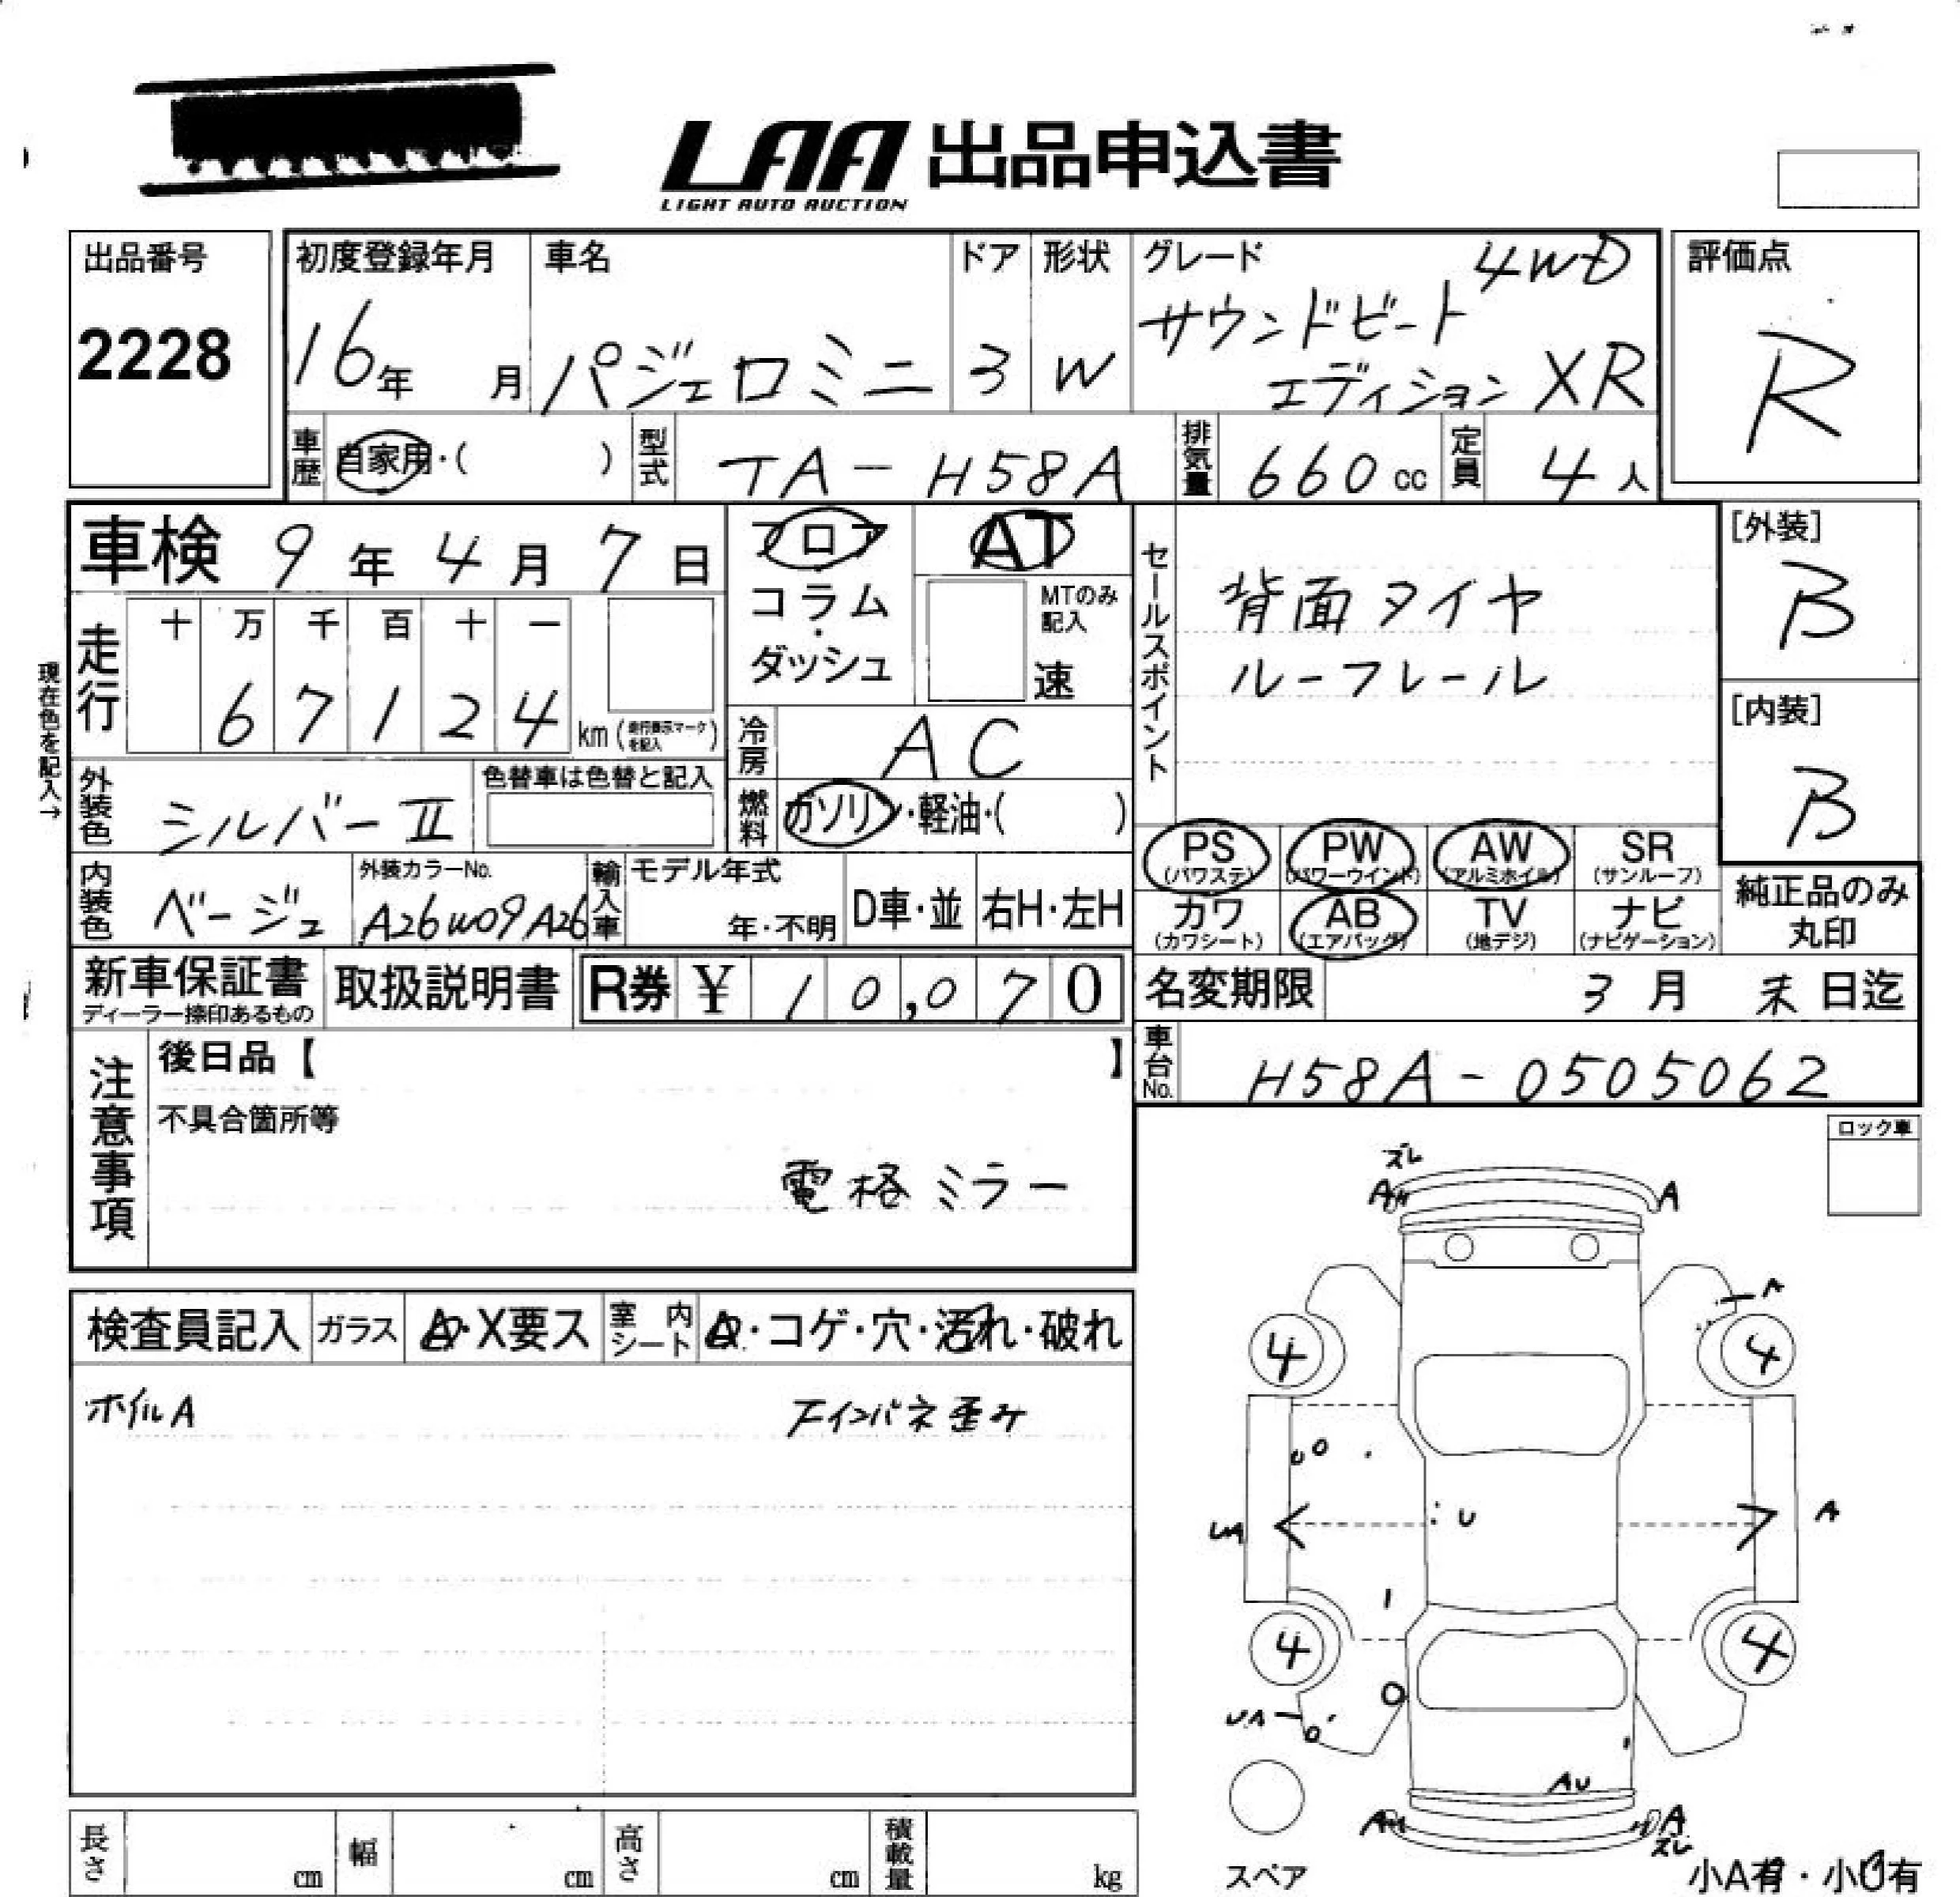 LAA 出品申込書
LIGHT AUTO AUCTION
出品番号
2228
初度登録年月
16年 月
車名
パジェロミニ
ドア
3
形状
W
グレード
4WD
サウンドビート
エディション XR
評価点
R
車歴 自家用・( )
型式 TA-H58A
排気量 660 cc
定員 4人
車検 9年4月7日
走行
十 万 千 百 十 一
6 7 1 2 4 km (走行表示マークを記入)
現在色を記入→
フロア
コラム
・
ダッシュ
AT
MTのみ
記入
速
冷房 AC
燃料 ガソリン・軽油・( )
セールスポイント
背面タイヤ
ルーフレール
[外装]
B
[内装]
B
外装色 シルバーⅡ
色替車は色替と記入
内装色 ベージュ
外装カラーNo.
A26W09A26
輸入車
モデル年式
年・不明
D車・並
右H・左H
PS
(パワステ)
PW
(パワーウインド)
AW
(アルミホイル)
SR
(サンルーフ)
カワ
(カワシート)
AB
(エアバッグ)
TV
(地デジ)
ナビ
(ナビゲーション)
純正品のみ
丸印
新車保証書
ディーラー捺印あるもの
取扱説明書
R券 ¥ 10,070
名変期限 3月 末日迄
車台No. H58A-0505062
注意事項
後日品【 】
不具合箇所等
電格ミラー
ロック車
検査員記入
ガラス
A・X要ス
室内シート
・コゲ・穴・汚れ・破れ
ホイルA
Fインパネ歪み
ズレ
A
A
A
4
4
U
A
4
4
UA
AU
A
ズレ
スペア
小A有・小U有
長さ cm
幅 cm
高さ cm
積載量 kg